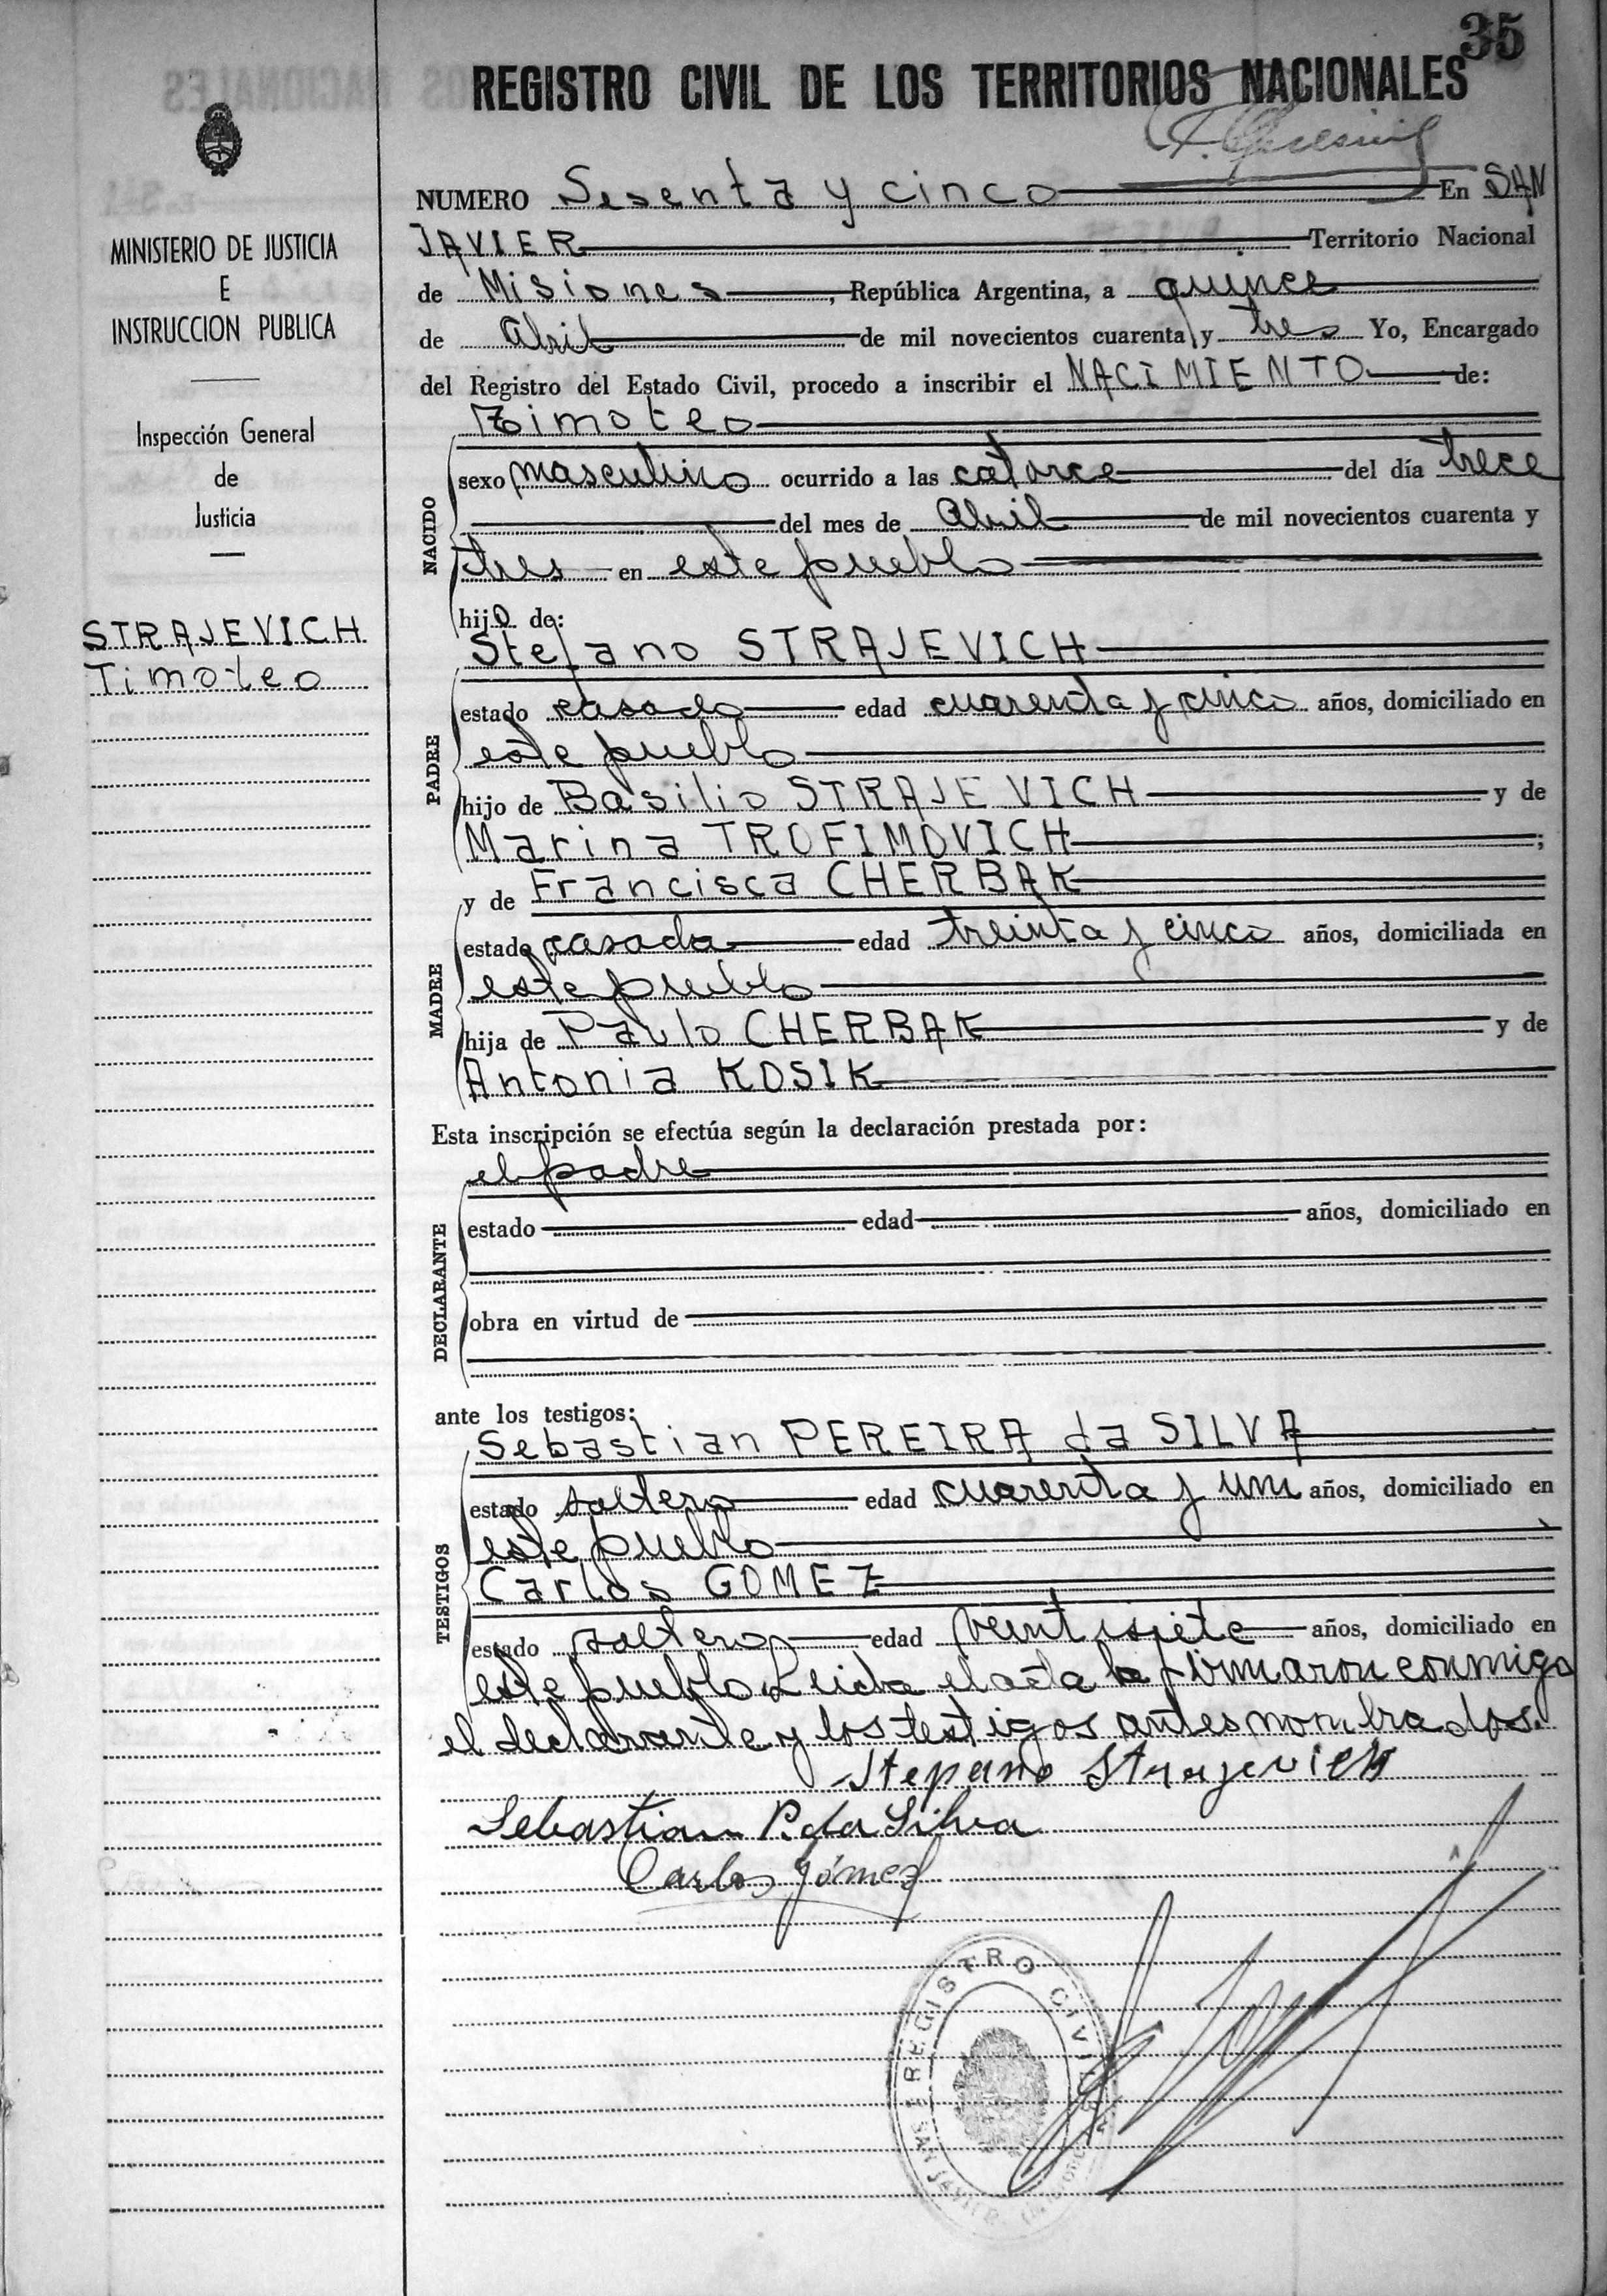 35
REGISTRO CIVIL DE LOS TERRITORIOS NACIONALES
MINISTERIO DE JUSTICIA
E
INSTRUCCION PUBLICA
Inspección General
de
Justicia
STRAJEVICH
Timoteo
NUMERO Sesenta y cinco En SAN
JAVIER Territorio Nacional
de Misiones, República Argentina, a quince
de Abril de mil novecientos cuarenta y tres Yo, Encargado
del Registro del Estado Civil, procedo a inscribir el NACIMIENTO de:
Timoteo
NACIDO
sexo masculino ocurrido a las catorce del día trece
del mes de Abril de mil novecientos cuarenta y
tres en este pueblo
hijo de:
Stefano STRAJEVICH
PADRE
estado casado edad cuarenta y cinco años, domiciliado en
este pueblo
hijo de Basilio STRAJEVICH y de
Marina TROFIMOVICH;
y de Francisca CHERBAK
MADRE
estado casada edad treinta y cinco años, domiciliada en
este pueblo
hija de Paulo CHERBAK y de
Antonia KOSIK
Esta inscripción se efectúa según la declaración prestada por:
el padre
DECLARANTE
estado edad años, domiciliado en
obra en virtud de
ante los testigos:
Sebastian PEREIRA da SILVA
TESTIGOS
estado soltero edad cuarenta y un años, domiciliado en
este pueblo
Carlos GOMEZ
estado soltero edad veintisiete años, domiciliado en
este pueblo Leida el acta la firmaron conmigo
el declarante y los testigos antes nombrados.
Stepano Strajevich
Sebastian P. da Silva
Carlos Gómez
REGISTRO CIVIL
SAN JAVIER